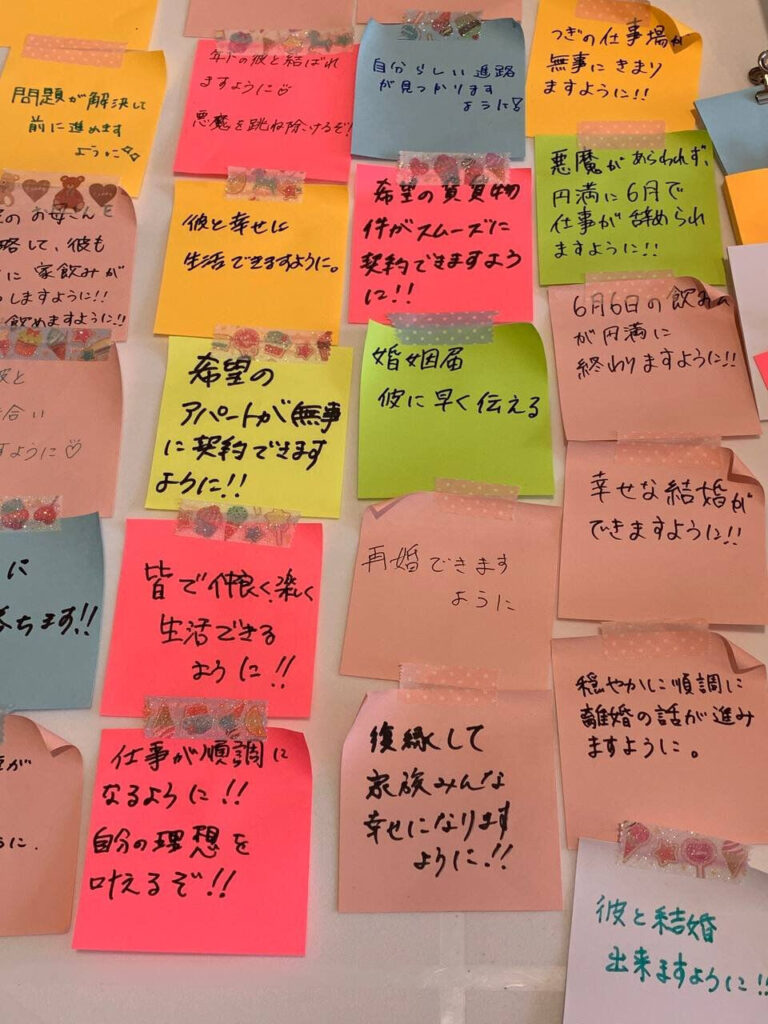 問題が解決して
前に進めます
ように
年下の彼と結ばれ
ますように♡
悪魔を跳ね除けるぞ!
自分らしい進路
が見つかります
ように!
つぎの仕事場が
無事にきまり
ますように!!
のお母さんを
略して、彼も
に家飲みが
しますように!!
飲めますように!!
彼と幸せに
生活できるすように。
希望の賃貸物
件がスムーズに
契約できますよう
に!!
悪魔があらわれず、
円満に6月で
仕事が辞められ
ますように!!
彼と
合い
すように♡
希望の
アパートが無事
に契約できます
ように!!
婚姻届
彼に早く伝える
6月6日の飲み
が円満に
終わりますように!!
に
ちます!!
皆で仲良く、楽しく
生活できる
ように!!
再婚できます
ように
幸せな結婚が
できますように!!
が
に.
仕事が順調に
なるように!!
自分の理想を
叶えるぞ!!
復縁して
家族みんな
幸せになります
ように!!
穏やかに順調に
離婚の話が進み
ますように。
彼と結婚
出来ますように!!